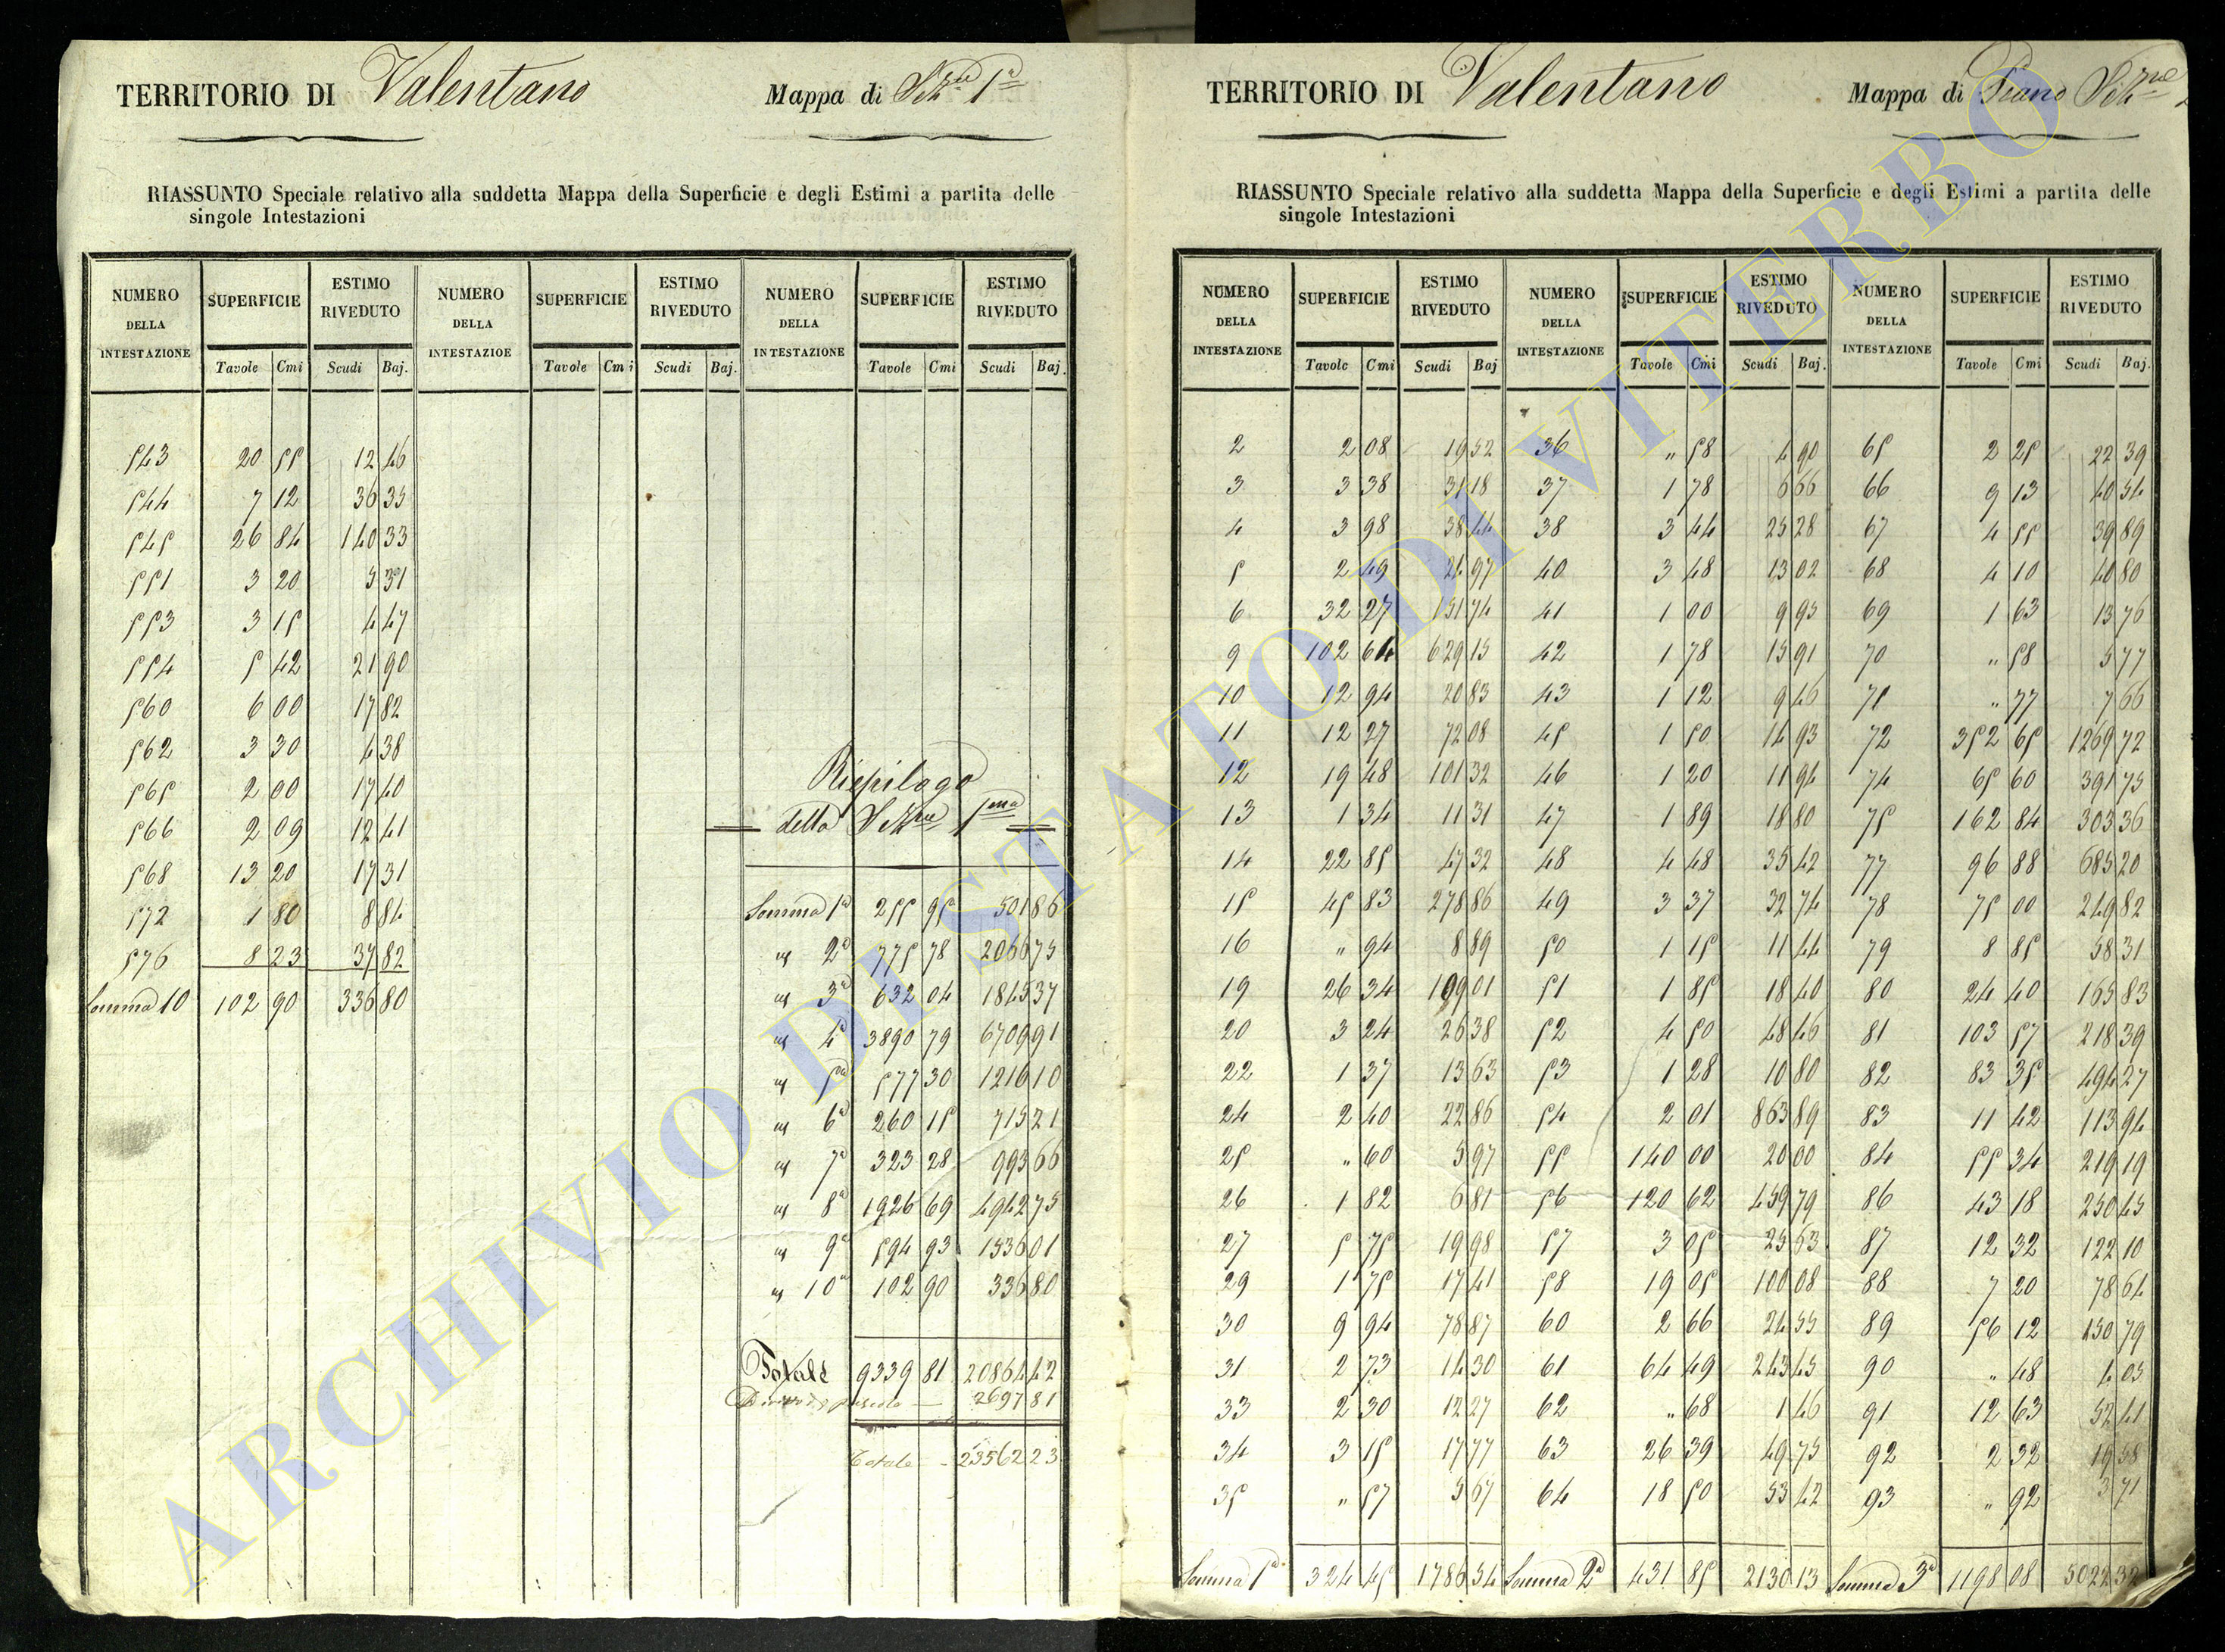 TERRITORIO DI Valentano Mappa di Sez.ne 1a
RIASSUNTO Speciale relativo alla suddetta Mappa della Superficie e degli Estimi a partita delle
singole Intestazioni
NUMERO DELLA INTESTAZIONE SUPERFICIE ESTIMO RIVEDUTO NUMERO DELLA INTESTAZIOE SUPERFICIE ESTIMO RIVEDUTO NUMERO DELLA INTESTAZIONE SUPERFICIE ESTIMO RIVEDUTO
Tavole Cmi Scudi Baj. Tavole Cmi Scudi Baj. Tavole Cmi Scudi Baj.
543 20 55 12 46
544 7 12 36 35
545 26 84 140 33
551 3 20 5 31
553 3 15 4 47
554 5 42 21 90
560 6 00 17 82
562 3 30 4 38
565 2 00 17 40
566 2 09 12 41
568 13 20 17 31
572 1 80 8 84
576 8 23 37 82
Somma 10 102 90 336 80
Riepilogo
della Sez.ne 1ma
Somma 1a 255 95 501 86
" 2a 775 78 2066 75
" 3a 632 04 1845 37
" 4a 3890 79 6709 91
" 5a 577 30 1216 10
" 6a 260 15 715 21
" 7a 323 28 993 66
" 8a 1926 69 4942 75
" 9a 594 93 1536 01
" 10a 102 90 336 80
Totale 9339 81 20864 42
pascolo — 2697 81
Totale - 23562 23
TERRITORIO DI Valentano Mappa di Piano Sez.ne
RIASSUNTO Speciale relativo alla suddetta Mappa della Superficie e degli Estimi a partita delle
singole Intestazioni
NUMERO DELLA INTESTAZIONE SUPERFICIE ESTIMO RIVEDUTO NUMERO DELLA INTESTAZIONE SUPERFICIE ESTIMO RIVEDUTO NUMERO DELLA INTESTAZIONE SUPERFICIE ESTIMO RIVEDUTO
Tavole Cmi Scudi Baj Tavole Cmi Scudi Baj. Tavole Cmi Scudi Baj.
2 2 08 19 52 36 " 58 4 90 65 2 25 22 39
3 3 38 31 18 37 1 78 6 66 66 9 13 40 54
4 3 98 38 44 38 3 44 25 28 67 4 55 39 89
5 2 49 24 97 40 3 48 13 02 68 4 10 40 80
6 32 27 151 74 41 1 00 9 95 69 1 63 13 76
9 102 64 629 15 42 1 78 15 91 70 " 58 5 77
10 12 94 20 83 43 1 12 9 46 71 " 77 7 66
11 12 27 72 08 45 1 50 14 93 72 352 65 1269 72
12 19 48 101 32 46 1 20 11 94 74 65 60 391 75
13 1 34 11 31 47 1 89 18 80 75 162 84 303 36
14 22 85 47 32 48 4 48 35 42 77 96 88 685 20
15 45 83 278 86 49 3 37 32 74 78 75 00 249 82
16 " 94 8 89 50 1 15 11 44 79 8 85 58 31
19 26 34 109 01 51 1 85 18 40 80 24 40 165 83
20 3 24 26 38 52 4 50 48 46 81 103 57 218 39
22 1 37 13 63 53 1 28 10 80 82 83 35 494 27
24 2 40 22 86 54 2 01 863 89 83 11 42 113 94
25 " 60 5 97 55 140 00 20 00 84 55 34 219 19
26 1 82 6 81 56 120 62 459 79 86 43 18 250 45
27 5 75 19 98 57 3 05 25 63 87 12 32 122 10
29 1 75 17 41 58 19 05 100 08 88 7 20 78 64
30 9 94 78 87 60 2 66 24 55 89 56 12 130 79
31 2 73 14 30 61 64 49 243 45 90 " 48 4 03
33 2 30 12 27 62 " 68 1 46 91 12 63 52 41
34 3 15 17 77 63 26 39 49 75 92 2 32 19 58
35 " 57 5 67 64 18 50 53 42 93 " 92 3 71
Somma 1a 324 45 1786 54 Somma 2a 431 85 2130 13 Somma 3a 1198 08 5022 32
ARCHIVIO DI STATO DI VITERBO